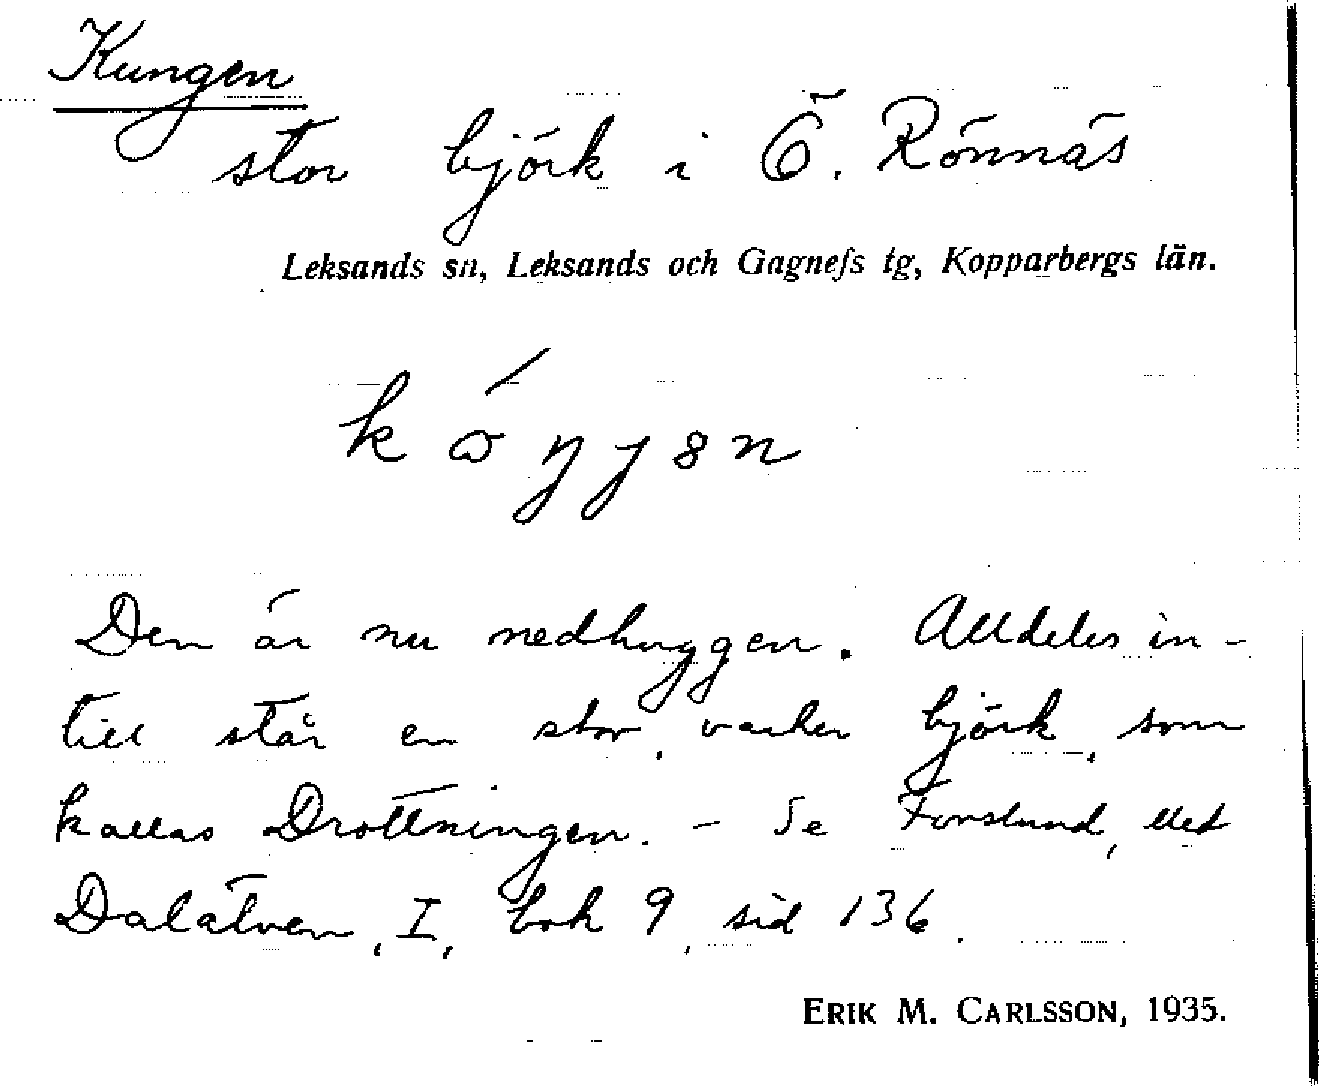 Kungen
stor björk i Ö. Rönnäs
Leksands sn, Leksands och Gagnefs tg, Kopparbergs län.
Den är nu nedhuggen. Alldeles in-
till står en stor, vacker björk, som
kallas Drottningen. - Se Forslund, Med
Dalälven, I, bok 9, sid 136.
ERIK M. CARLSSON, 1935.